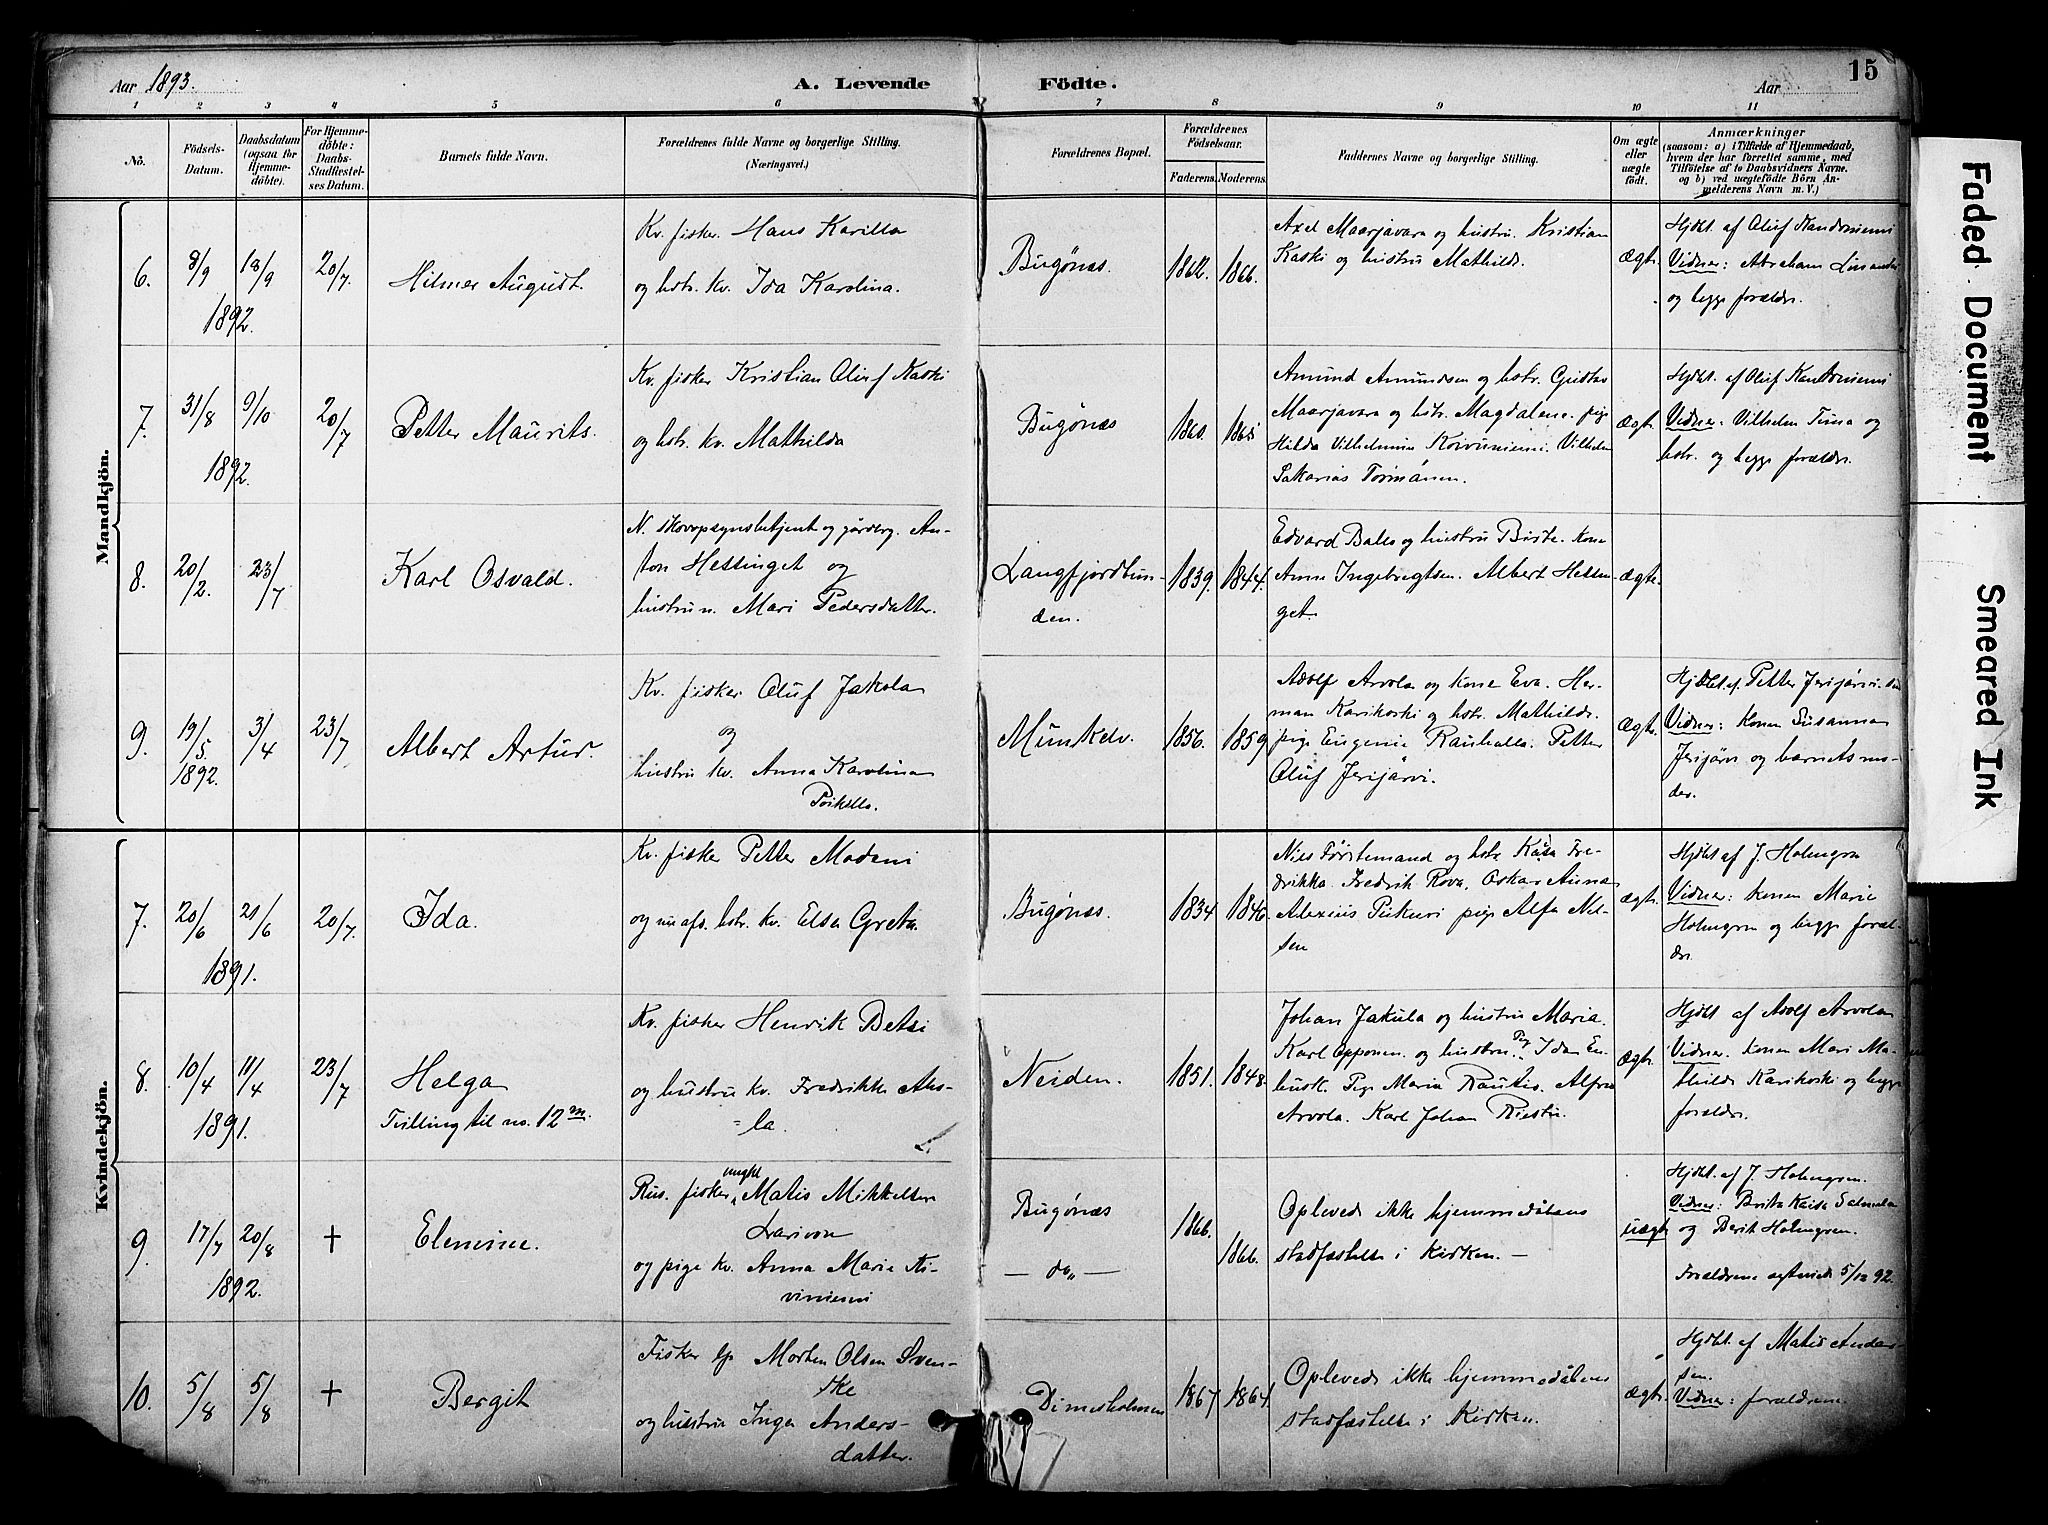 Aar 1893.
A. Levende
Födte.
Aar
15
1 2 3 4 5 6 7 8 9 10 11
No.
Födsels-
Datum.
Daabsdatum
(ogsaa for
Hjemme-
döbte).
For Hjemme-
döbte:
Daabs-
Stadfæstel-
ses Datum.
Barnets fulde Navn.
Forældrenes fulde Navne og borgerlige Stilling.
(Næringsvei.)
Forældrenes Bopæl.
Forældrenes
Födselsaar.
Faderens.
Moderens.
Faddernes Navne og borgerlige Stilling.
Om ægte
eller
uægte
födt.
Anmærkninger
(saasom: a) i Tilfælde af Hjemmedaab,
hvem der har forrettet samme, med
Tilföielse af to Daabsvidners Navne.
og b) ved uægtefödte Börn An-
melderens Navn m. V.)
Mandkjön.
6.
8/9
18/9
1892.
20/7.
Hilmer August.
Kv. fisker. Hans Karilla
og hstr. kv. Ida Karolina.
Bugønæs.
1862.
1866.
Axel Maarjavara og hustru. Kristian
Kaski og hustru Mathilde.
Ægte.
Hjdbt. af Oluf Kandonieni
Vidner: Abraham
og begge forældr.
7.
31/8
9/10
1892.
20/7
Petter Maurits.
Kv. fisker Kristian Oluf Kaski
og hstr. kv. Mathilda
Bugønæs
1860.
1865
Amund Amundsen og hstr. Gustav
Maarjavara og hstr. Magdalene. pige
Hilda Vilhelmine Koivunieni. Vilhelm
Sakarias Törmänen.
Ægte.
Hjdbt. af Oluf Kandonieni
Vidner: Vilhelm Tima og
hstr. og begge forældr.
8.
20/2.
23/7
Karl Osvald.
N. Skovopsynsbetjent og gårdbrg. An-
ton Hessinget og
hustru n. Mari Pedersdatter.
Langfjordbun-
den.
1839.
1844.
Edvard Bales og hustru Birte. Kone
Anne Ingebregtsen. Albert Hessin-
get.
Ægte.
9.
19/5.
3/4
1892.
23/7
Albert Artur.
Kv. fisker Oluf Jakola
og
hustru kv. Anna Karolina
Poikella.
Munkelv.
1856.
1859
Adolf Arvola og kone Eva. Her-
man Karikoski og hstr. Mathilde.
pige Eugenie Rauhalla. Petter
Oluf Jerijärvi.
Ægte.
Hjdbt af. Petter Jerijärvi.
Vidner: Konen Susanna
Jerijärvi og barnets mo-
der.
Kvindekjön.
7.
20/6
21/6
1891.
20/7.
Ida.
Kv. fisker Petter Modeni
og nu afd. hstr. kv. Elsa Greta.
Bugønæs.
1834
1846.
Nies Förstemand og hstr Kaisa Fre-
drikka. Fredrik Rova. Oskar Anna
Alexius Pukuri pige Alfa Nel-
sen
Ægte.
Hjdbt af J. Holmgren
Vidner: konen Marie
Holmgren og begge foræl-
dre.
8.
10/4
11/4
1891.
23/7
Helga
Tvilling til no. 12 m.
Kv. fisker Henrik Betsi
og hustru kv. Fredrikke Aho-
=la.
Neiden.
1851.
1848.
Johan Jakula og hustru Maria.
Karl Opponen. og hustru. Pig Ida En-
busk. Pige Maria Rautio. Alfred
Arvola. Karl Johan Riesti.
Ægte.
Hjdbt af Adolf Arvola
Vidner. konen Mari Ma-
thilde Karikoski og begge
forældre.
9.
17/7
20/8
1892.
+
Elenine.
Rus. fisker ungkl Matis Mikkelsen
Larivon
og pige kv. Anna Marie Ai-
vinieni
Bugønæs
— do„ —
1866.
1866.
Opleved ikke hjemmedåbens
stadfæstelse i kirken. —
uægte
Hjdbt. af J. Holmgren.
Vidner: Brita Kaisa Salmela
og Berit Holmgren.
Forældrene ægteviede 5/12 92.
10.
5/8
5/8
+
Bergit
Fisker lp Morten Olsen Sven-
ske
og hustru Inga Anders-
datter.
Dimesholmen
1867
1864.
Opleved ikke hjemmedåbens
stadfæstelse i kirken.
Ægte.
Hjdbt. af Matis Anders-
sen.
Vidner: forældrene.
Faded Document
Smeared Ink